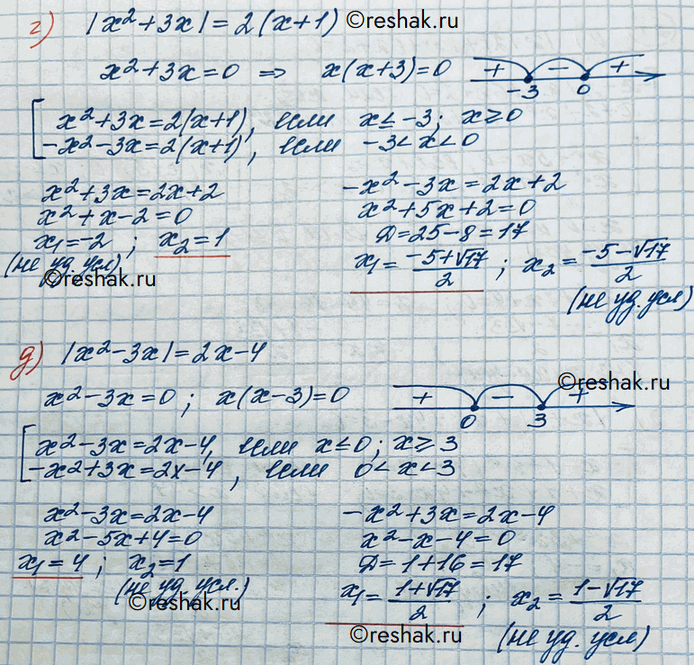 ©reshak.ru
г) |x²+3x|=2(x+1)
x²+3x=0 ⇒ x(x+3)=0
+ − +
-3 0
x²+3x=2(x+1), если x≤-3; x≥0
-x²-3x=2(x+1), если -3<x<0
x²+3x=2x+2
x²+x-2=0
x₁=-2 ; x₂=1
(не уд. усл)
©reshak.ru
-x²-3x=2x+2
x²+5x+2=0
Д=25-8=17
x₁=(-5+√17)/2 ; x₂=(-5-√17)/2
(не уд. усл)
д) |x²-3x|=2x-4
x²-3x=0; x(x-3)=0
©reshak.ru
+ − +
0 3
x²-3x=2x-4, если x≤0; x≥3
-x²+3x=2x-4, если 0<x<3
x²-3x=2x-4
x²-5x+4=0
x₁=4 ; x₂=1
(не уд. усл.)
©reshak.ru
-x²+3x=2x-4
x²-x-4=0
Д=1+16=17
x₁=(1+√17)/2 ; x₂=(1-√17)/2
(не уд. усл)
©reshak.ru